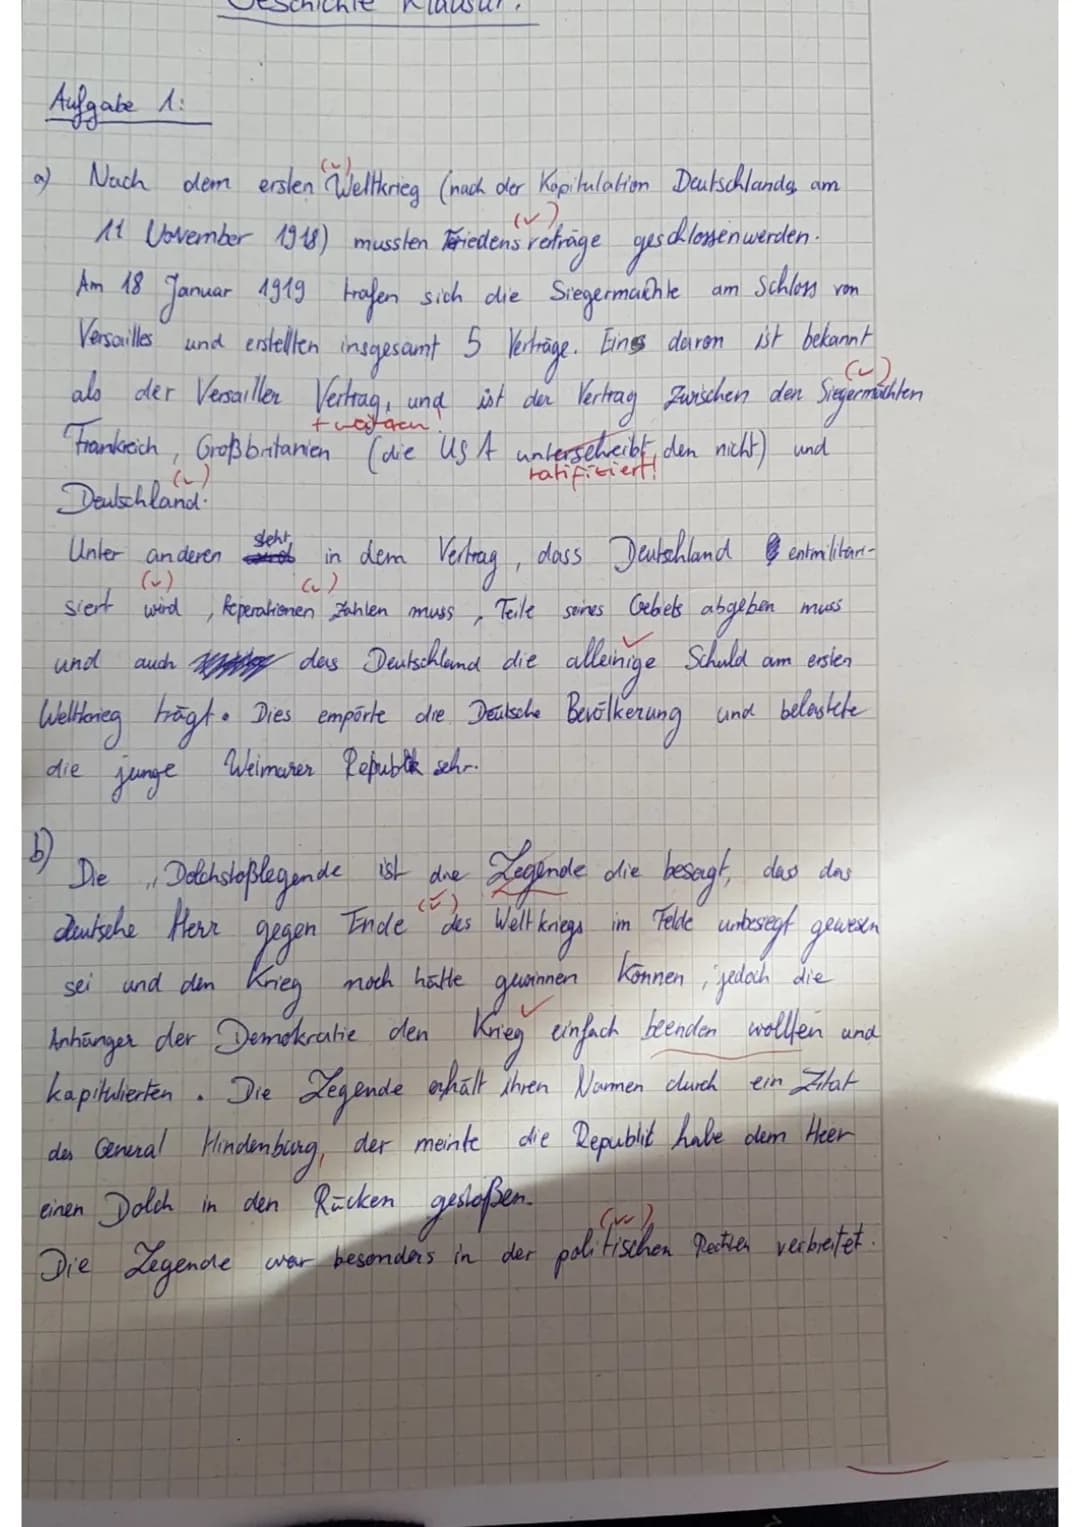 Geschichte Klausur:
Aufgabe 1:
a) Nach dem ersten Weltkrieg (nach der Kapitulation Deutschlands am
11 November 1918) mussten Friedensverträge geschlossen werden.
Am 18 Januar 1919 trafen sich die Siegermächte am Schloss von
Versailles und erstellten insgesamt 5 Verträge. Eins davon ist bekannt
als der Versailler Vertrag, und ist der Vertrag zwischen den Siegermächten
+ weiteren!
Frankreich, Großbritanien (die USA unterscheibt den nicht) und
ratifiziert!
Deutschland.
Unter anderen steht in dem Vertrag, dass Deutschland entmilitari-
siert wird, Reperationen zahlen muss, Teile seines Gebiets abgeben muss
und auch das Deutschland die alleinige Schuld am ersten
Weltkrieg trägt. Dies empörte die Deutsche Bevölkerung und belastete
die junge Weimarer Republik sehr.
b) Die "Dolchstoßlegende ist die Legende die besagt, das das
deutsche Herr gegen Ende des Weltkriegs im Felde unbesiegt gewesen
sei und den Krieg noch hätte gewinnen können, jedoch die
Anhänger der Demokratie den Krieg einfach beenden wollten und
kapitulierten. Die Legende erhält ihren Nammen durch ein Zitat
des General Hindenburg, der meinte die Republik habe dem Heer
einen Dolch in den Rücken gestoßen.
Die Legende war besonders in der politischen Rechten verbreitet.